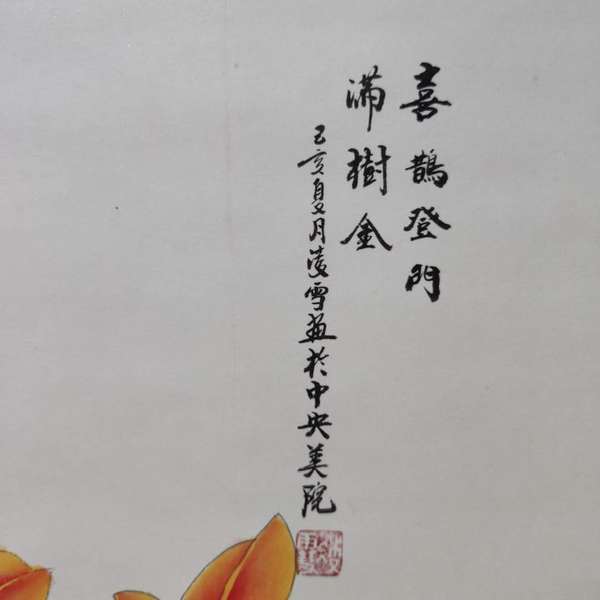 喜鵲登門
滿樹金
己亥夏月凌雪畫於中央美院